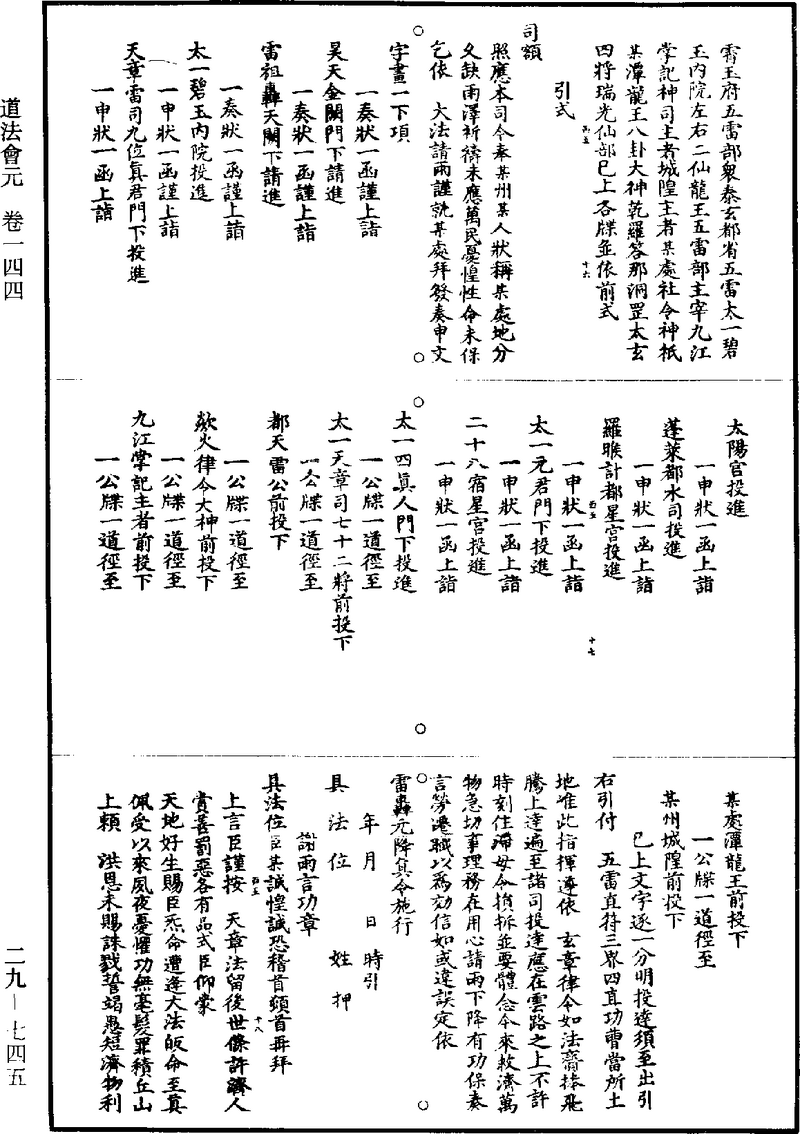 道法會元 卷一四四
霄玉府五雷部衆泰玄都省五雷太一碧
玉內院左右二仙龍王五雷部主宰九江
掌記神司主者城隍主者某處社令神祇
某潭龍王八卦大神乾羅答那洞罡太玄
四將瑞光仙部已上各牒並依前式
十六
引式
西五
司額
照應本司今奉某州某人狀稱某處地分
久缺雨澤祈禱未應萬民憂惶性命未保
乞依 大法請雨謹就某處拜發奏申文
字畫一下項
一奏狀一函謹上詣
昊天金闕門下請進
一奏狀一函謹上詣
雷祖轟天闕下請進
一奏狀一函謹上詣
太一碧玉內院投進
一申狀一函謹上詣
天章雷司九位真君門下投進
一申狀一函上詣
太陽宮投進
一申狀一函上詣
蓬萊都水司投進
一申狀一函上詣
羅睺計都星宮投進
西五
十七
一申狀一函上詣
太一元君門下投進
一申狀一函上詣
二十八宿星宮投進
一申狀一函上詣
太一四真人門下投進
一公牒一道徑至
太一天章司七十二將前投下
一公牒一道徑至
都天雷公前投下
一公牒一道徑至
歘火律令大神前投下
一公牒一道徑至
九江掌記主者前投下
一公牒一道徑至
某處潭龍王前投下
一公牒一道徑至
某州城隍前投下
已上文字逐一分明投達須至出引
右引付 五雷直符三界四直功曹當所土
地唯此指揮遵依 玄章律令如法齎捧飛
騰上達遍至諸司投達應在雲路之上不許
時刻住滯毋令損拆並要體念今來救濟萬
物急切事理務在用心請雨下降有功保奏
言勞遷職以為効信如或違誤定依
雷轟元降真令施行
年 月 日 時引
具 法 位 姓 押
謝雨言功章
具法位臣某誠惶誠恐稽首頓首再拜
西五
十八
上言臣謹按 天章法留後世條許濟人
賞善罰惡各有品式臣仰蒙
天地好生賜臣炁命遭逢大法皈命至真
佩受以來夙夜憂懼功無毫髮罪積丘山
上賴 洪恩未賜誅戮誓竭愚短濟物利
二九—七四五